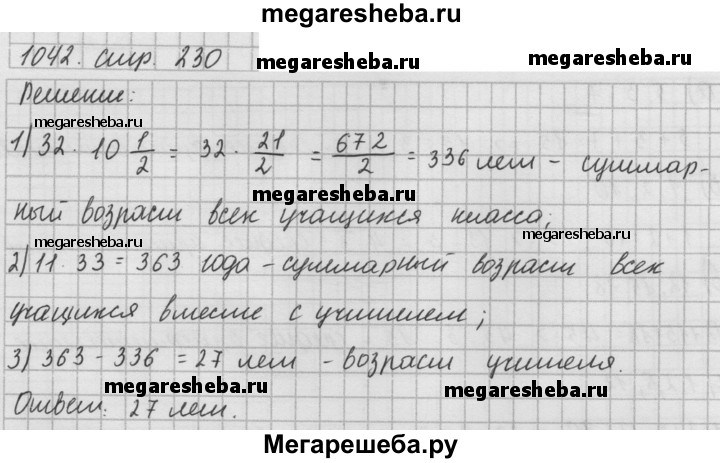 megaresheba.ru
1042. стр. 230
megaresheba.ru megaresheba.ru
Решение:
megaresheba.ru
1) 32 · 10 1/2 = 32 · 21/2 = 672/2 = 336 лет - суммар-
megaresheba.ru
ный возраст всех учащихся класса;
megaresheba.ru megaresheba.ru
2) 11 · 33 = 363 года - суммарный возраст всех
учащихся вместе с учителем;
3) 363 - 336 = 27 лет - возраст учителя.
megaresheba.ru megaresheba.ru
Ответ: 27 лет.
Мегарешеба.ру